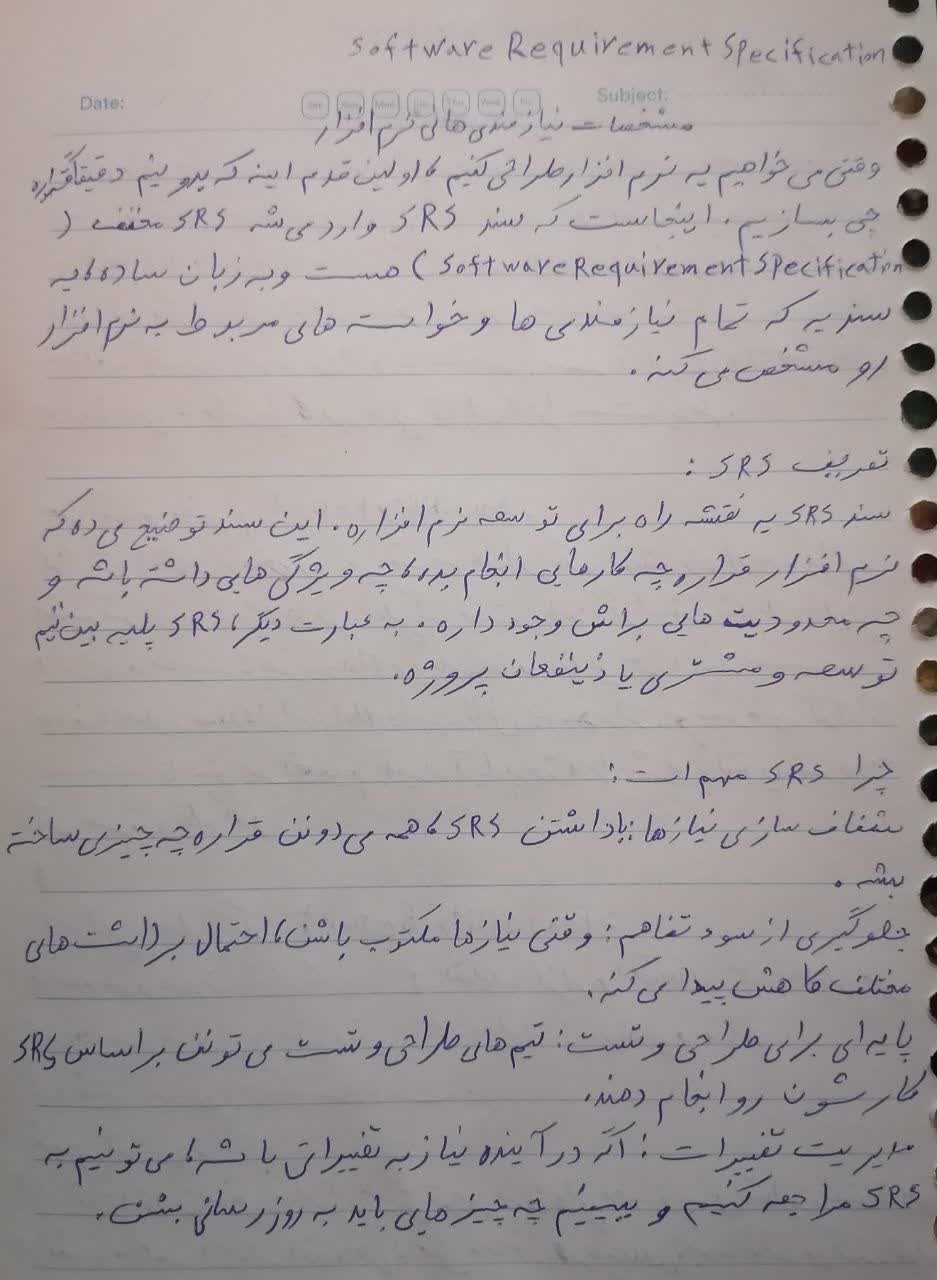 Software Requirement Specification
Date:
Subject:
مشخصات نیازمندی های نرم افزار
وقتی می خواهیم یه نرم افزار طراحی کنیم، اولین قدم اینه که بدونیم دقیقا قراره
چی بسازیم. اینجاست که سند SRS وارد می شه SRS مخفف (
Software Requirement Specification) هست و به زبان ساده، یه
سندیه که تمام نیازمندی ها و خواسته های مربوط به نرم افزار
رو مشخص می کنه.
تعریف SRS :
سند SRS یه نقشه راه برای توسعه نرم افزاره. این سند توضیح می ده که
نرم افزار قراره چه کارهایی انجام بده، چه ویژگی هایی داشته باشه و
چه محدودیت هایی براش وجود داره. به عبارت دیگر، SRS پلیه بین تیم
توسعه و مشتری یا ذینفعان پروژه.
چرا SRS مهم است:
شفاف سازی نیازها: با داشتن SRS، همه می دونن قراره چه چیزی ساخته
بشه.
جلوگیری از سوء تفاهم: وقتی نیازها مکتوب باشن، احتمال برداشت های
مختلف کاهش پیدا می کنه.
پایه ای برای طراحی و تست: تیم های طراحی و تست می تونن بر اساس SRS
کارشون رو انجام دهند.
مدیریت تغییرات: اگه در آینده نیاز به تغییراتی باشه، می تونیم به
SRS مراجعه کنیم و ببینیم چه چیزهایی باید به روز رسانی بشن.